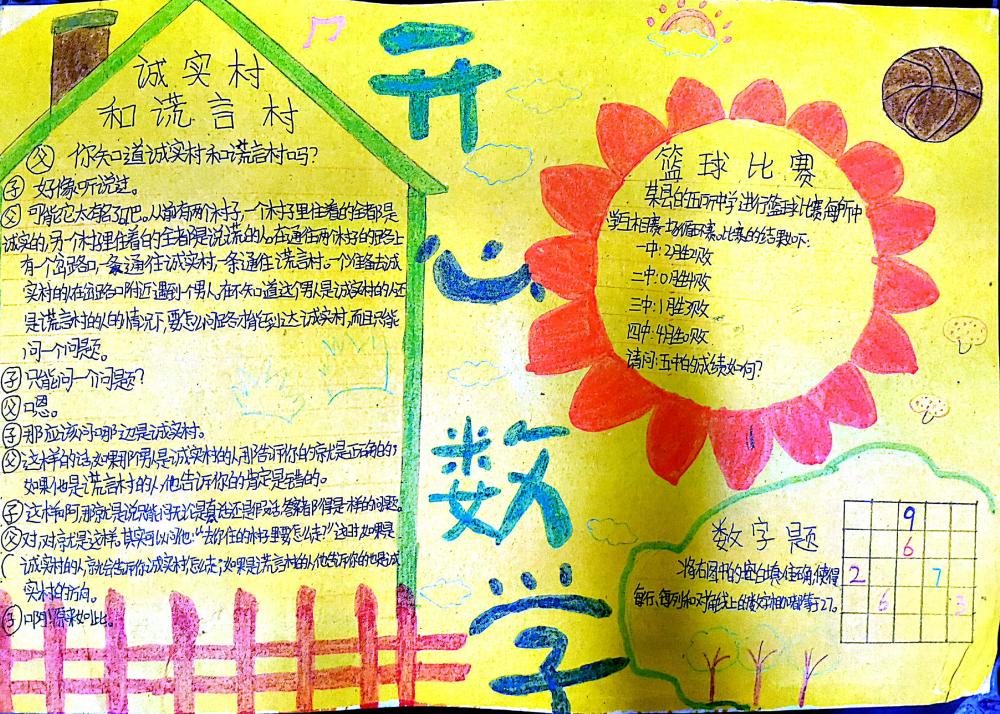 开心数学
诚实村
和谎言村
父 你知道诚实村和谎言村吗?
子 好像听说过。
父 可能它太有名了吧。从前有两个村子,一个村子里住着的全都是
诚实的,另一个村子里住着的全都是说谎的人。在通往两个村子的路上
有一个岔路口,一条通往诚实村,一条通住谎言村。一个准备去诚
实村的人在岔路口附近遇到一个男人。在不知道这个男人是诚实村的人还
是谎言村的人的情况下,要怎么问路才能到达诚实村,而且只能
问一个问题。
子 只能问一个问题?
父 嗯。
子 那应该问哪边是诚实村。
父 这样的话,如果那个男人是诚实村的人,那告诉你的就是正确的;
如果他是谎言村的人,他告诉你的肯定是错的。
子 这样啊,那就是说只能问无论是真话还是假话,答案都得是一样的问题。
父 对,对,就是这样。其实可以问他:“去你住的村子里要怎么走?”这时如果是
诚实村的人,就会告诉你诚实村怎么走;如果是谎言村的人他告诉你的也是诚
实村的方向。
子 啊!原来如此。
篮球比赛
某县的五所中学进行篮球比赛,每所中
学互相赛一场循环赛。比赛的结果如下:
一中:2胜2败
二中:0胜4败
三中:1胜3败
四中:4胜0败
请问:五中的成绩如何?
数字题
将右图中的空白填住正确,使得
每行、每列和对角线上的数字和都等于27。
9
6
2 7
6 3